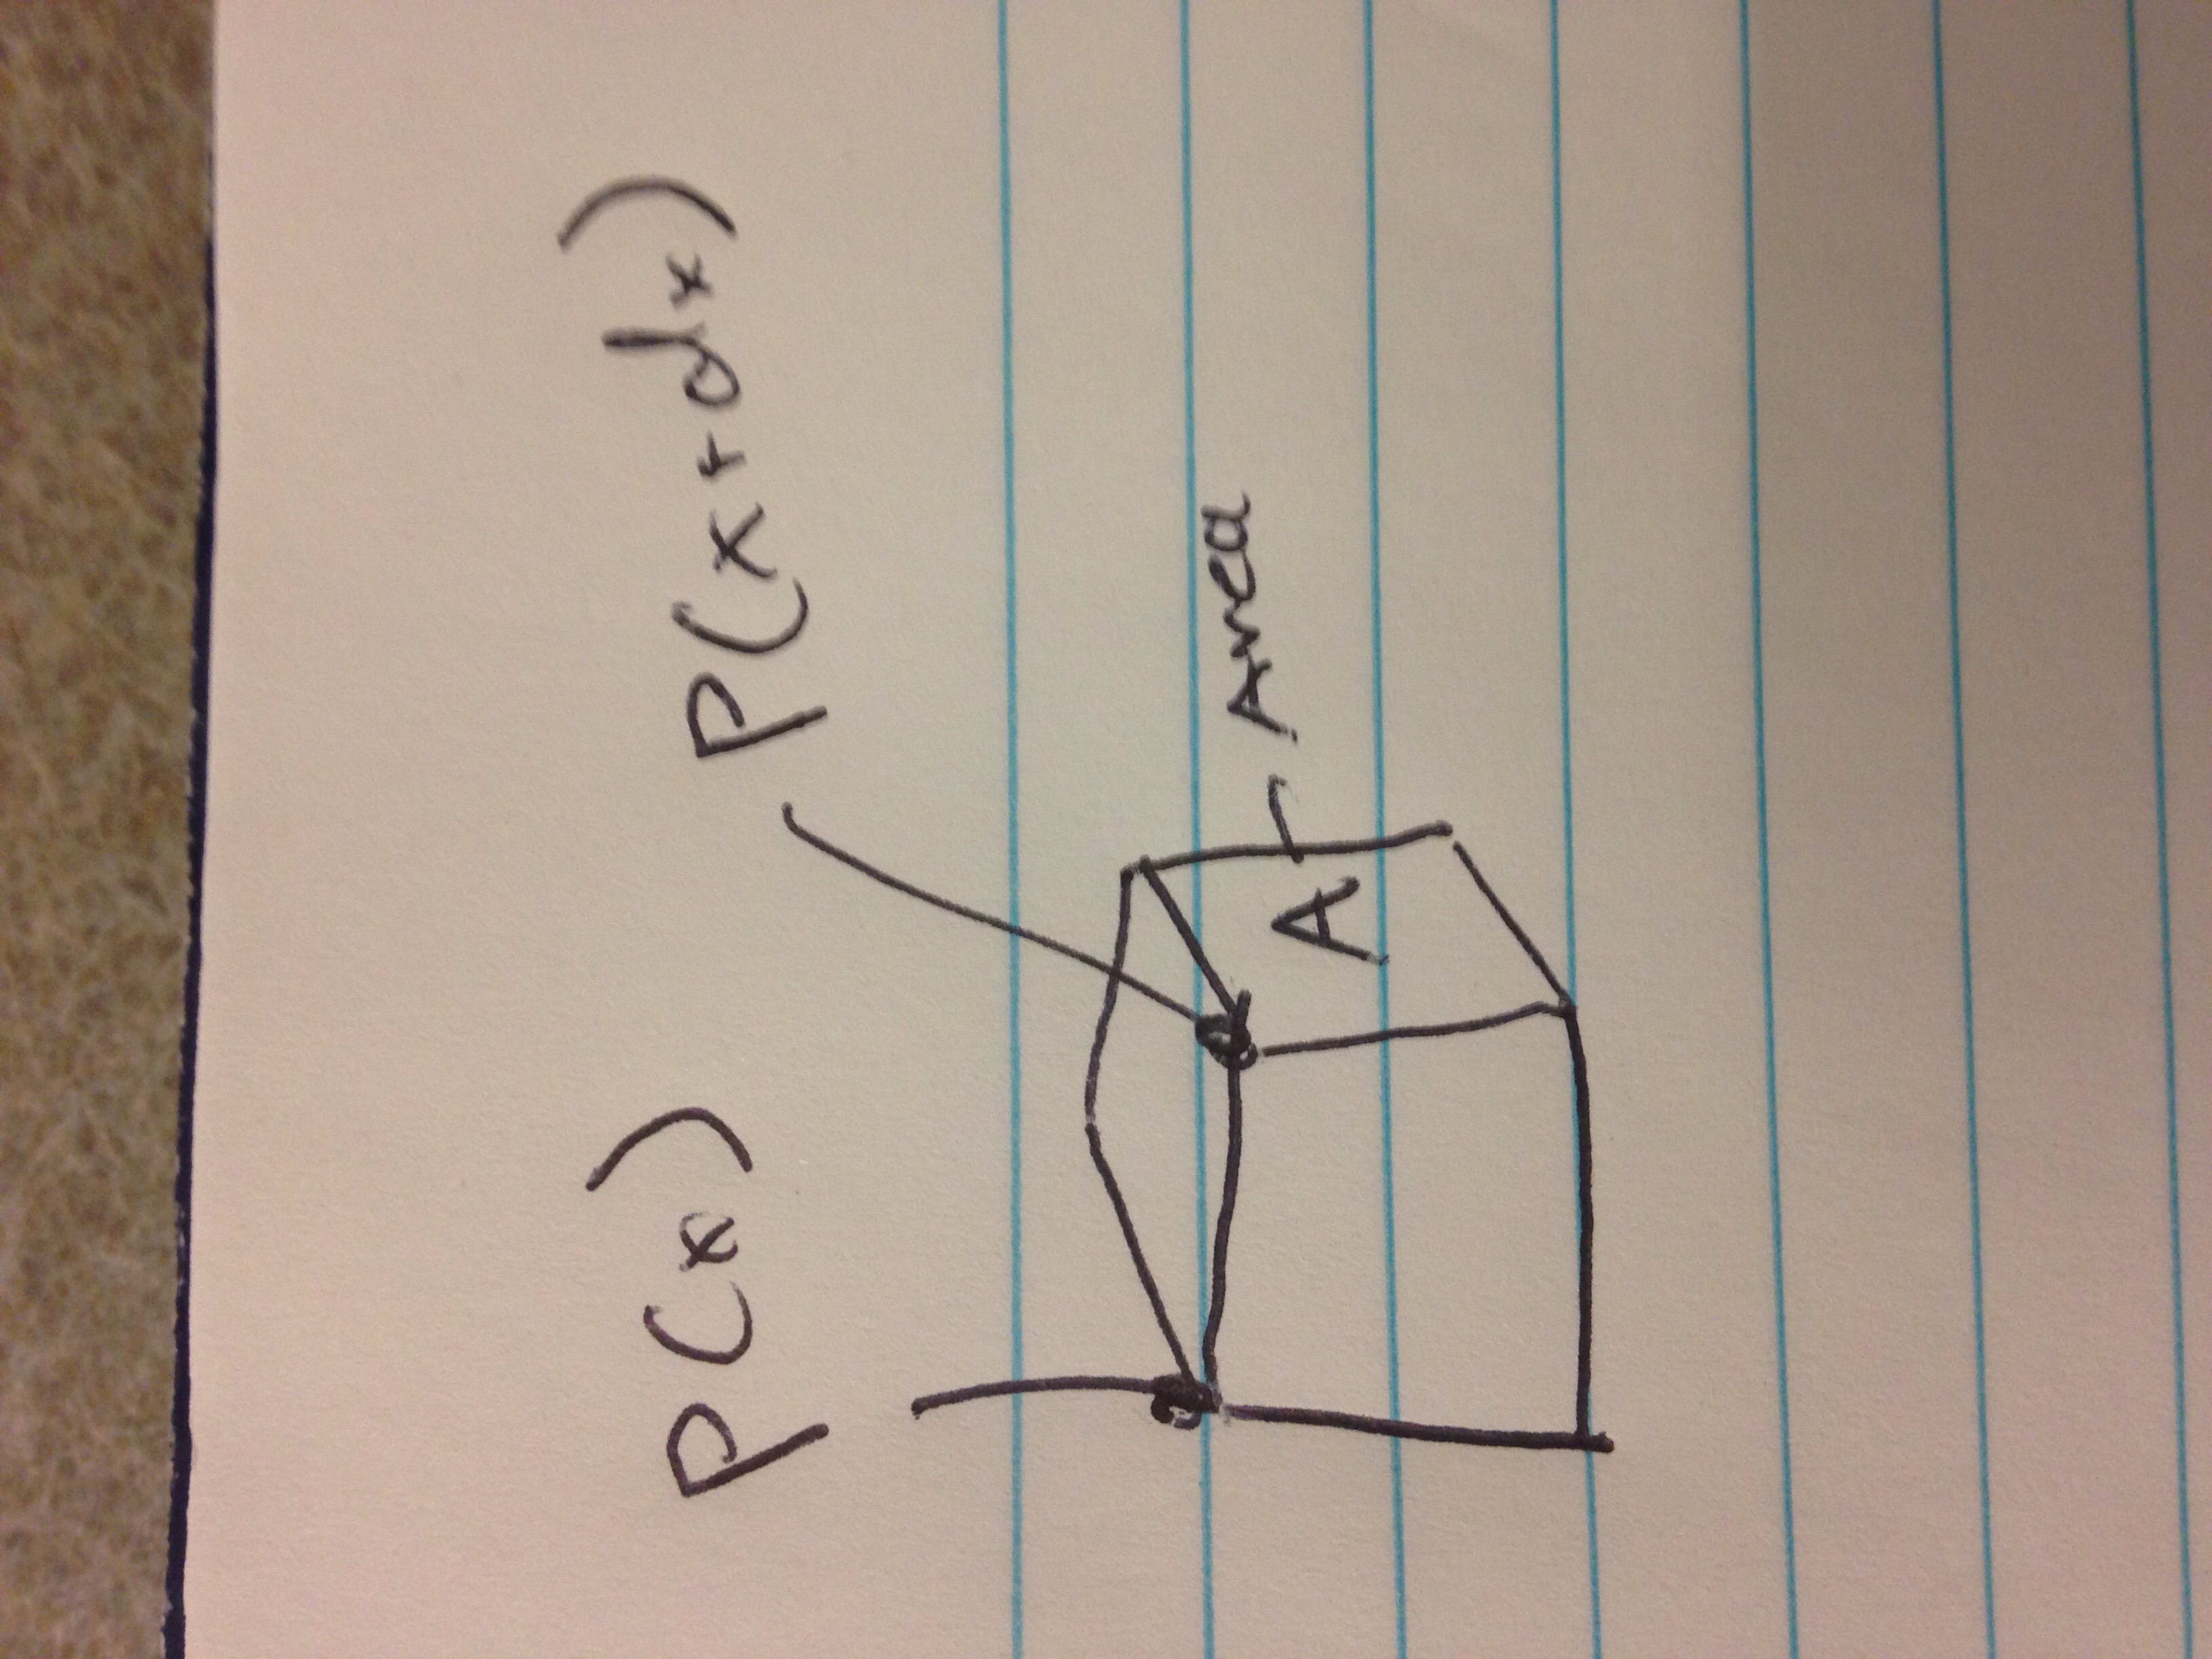 P(x)
P(x+dx)
A
Area